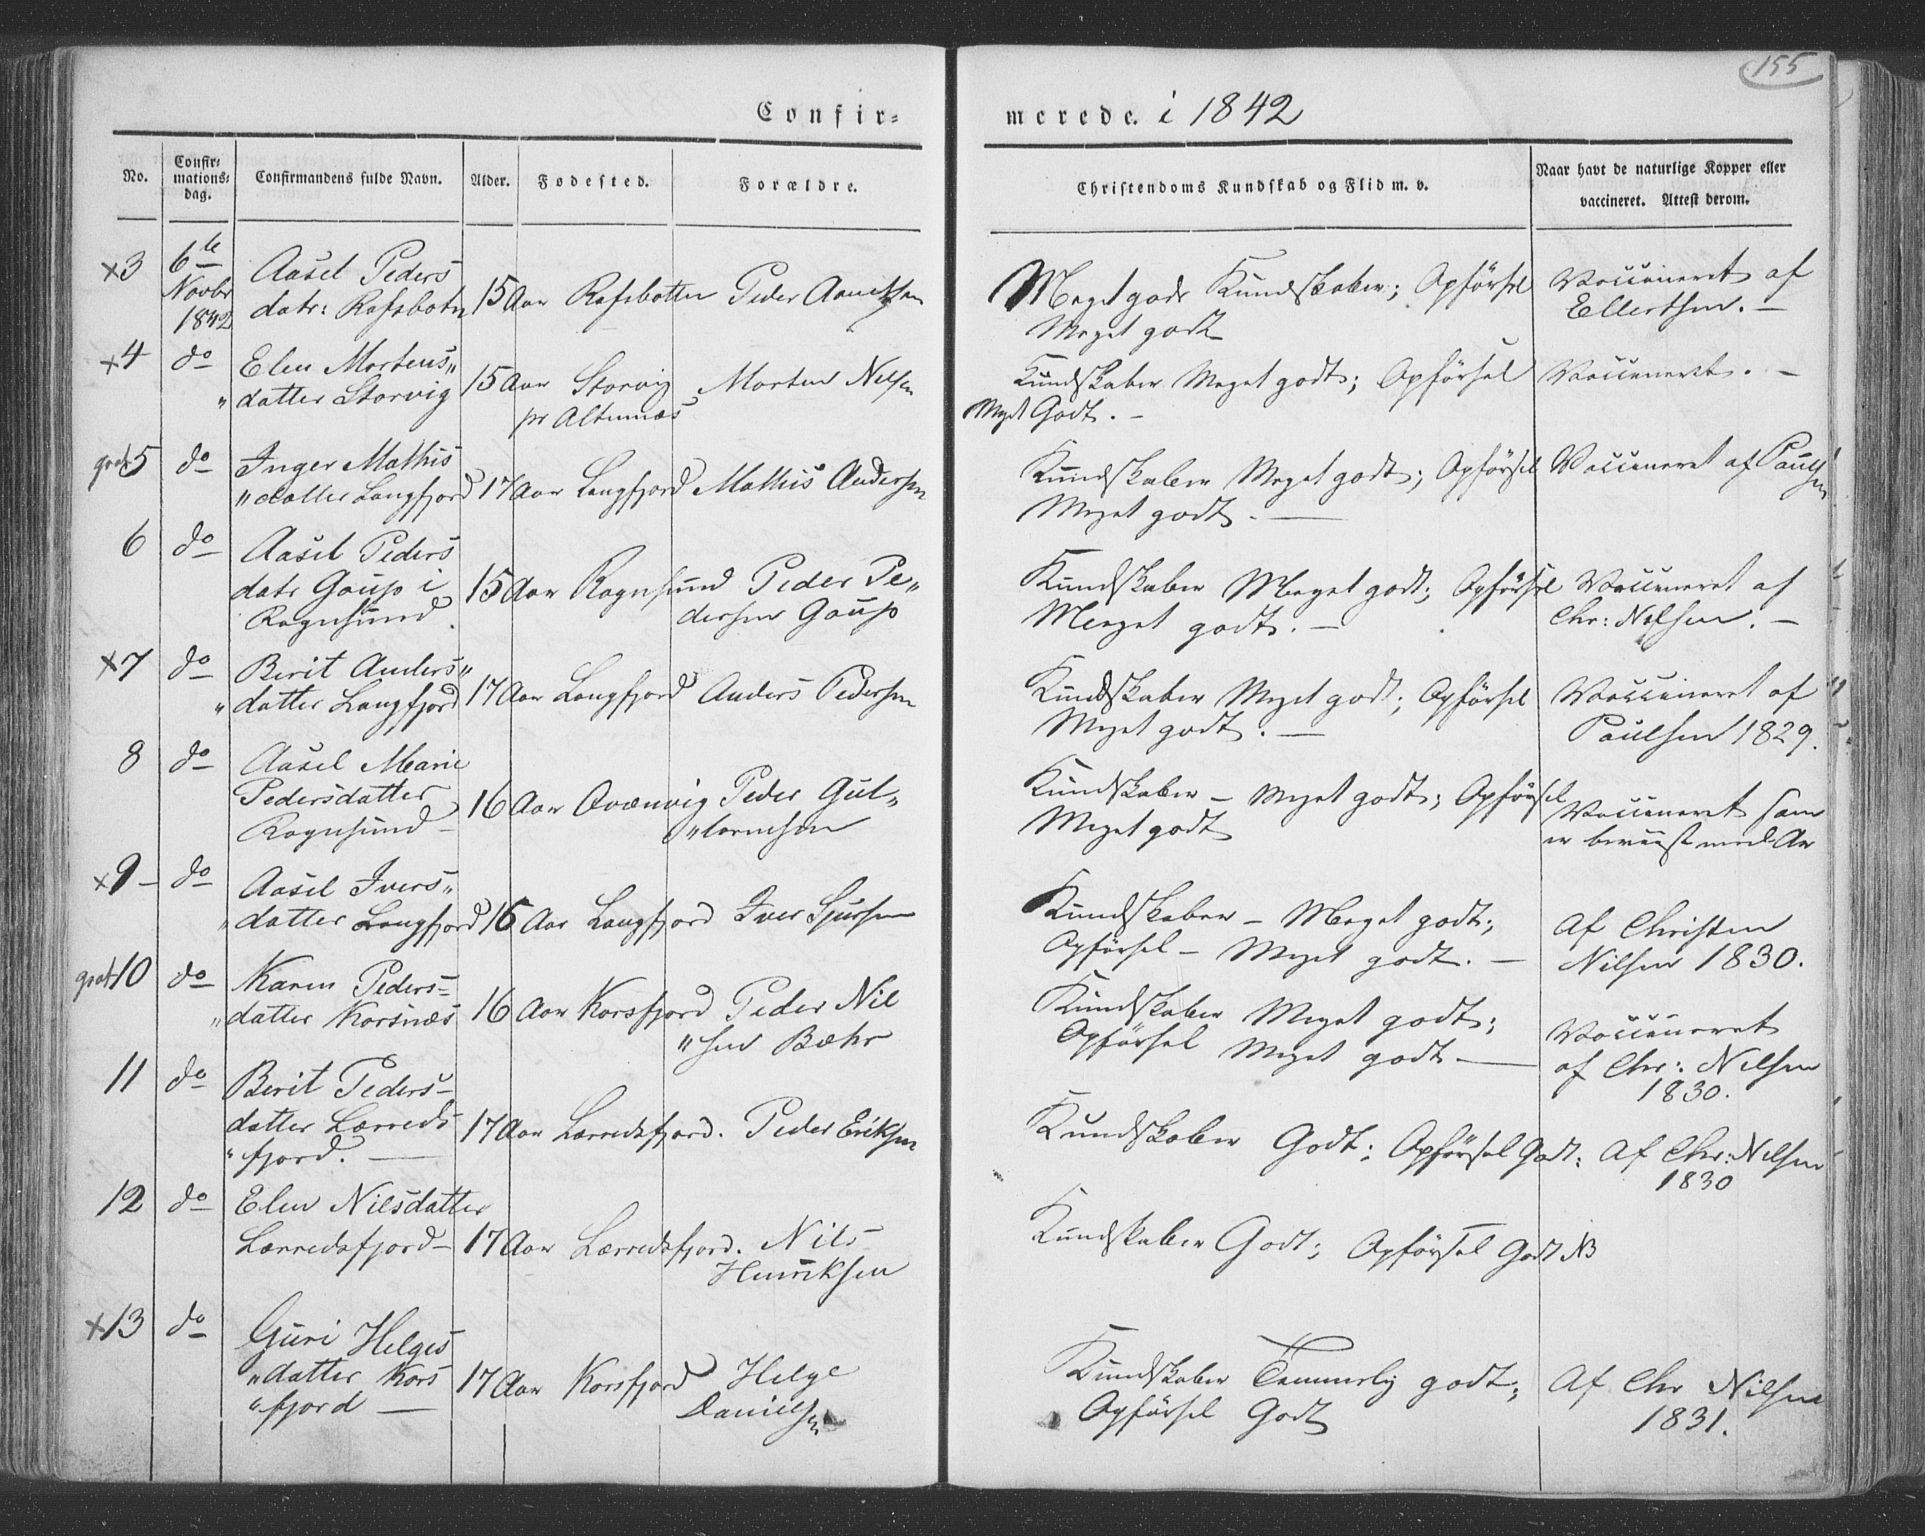 155
Confir= merede. i 1842
No. Confir= mations= dag. Confirmandens fulde Navn. Alder. Fødested. Forældre. Christendoms Kundskab og Flid m. v. Naar havt de naturlige Kopper eller vaccineret. Attest derom.
x3 6te Novbr 1842
Aasel Peders
datr: Rafsbotn 15 Aar Rafsbotten Peder
Meget gode Kundskaber; Opførsel
Meget godt
Vaccineret af
Ellertsen. –
x4 do Elen Mortens„
„datter Storvig 15 Aar Storvig Morten Nilsen
pr Altennæs
Kundskaber Meget godt; Opførsel
Meget Godt. –
Vaccineret. –
5 do Inger Mathis
„datter Langfjord 17 Aar Langfjord Mathis Andersen
Kundskaber Meget godt; Opførsel
Meget godt. –
Vaccineret af Paulsen
6 do Aasel Peders
datr Gaup i
Rognsund. 15 Aar Rognsund Peder Pe„
dersen Gaup
Kundskaber Meget godt; Opførsel
Meget godt. –
Vaccineret af
Chr: Nilsen. –
x7 do Berit Anders„
„datter Langfjord 17 Aar Langfjord Anders Pedersen
Kundskaber Meget godt; Opførsel
Meget godt. –
Vaccineret af
Paulsen 1829.
8 do Aasel Marie
Pedersdatter
Rognsund – 16 Aar Qvænvig Peder Gut„
„tormsen
Kundskaber – Meget godt; Opførsel
Meget godt
Vaccineret som
er beviist med Ar
x9 – do Aasel Ivers„
„datter Langfjord 16 Aar Langfjord Iver Sjursen
Kundskaber – Meget godt;
Opførsel – Meget godt. –
Af Christen
Nilsen 1830.
10 do Karen Peders=
„datter Korsnæs 16 Aar Korsfjord Peder Nil
„sen Bæhr
Kundskaber Meget godt;
Opførsel Meget godt –
Vaccineret
af Chr: Nilsen
1830.
11 do Berit Peders–
datter Lærreds
„fjord. – 17 Aar Lærredsfjord. Peder Eriksen
Kundskaber Godt; Opførsel Godt. Af Chr: Nilsen
1830
12 do Elen Nilsdatter
Lærredsfjord – 17 Aar Lærredsfjord. Nils
Henriksen
Kundskaber Godt; Opførsel Godt NB
x13 do Guri Helges
„datter Kors
„fjord – 17 Aar Korsfjord Helge
Danielsen
Kundskaber Temmelig godt;
Opførsel Godt
Af Chr Nilsen
1831.